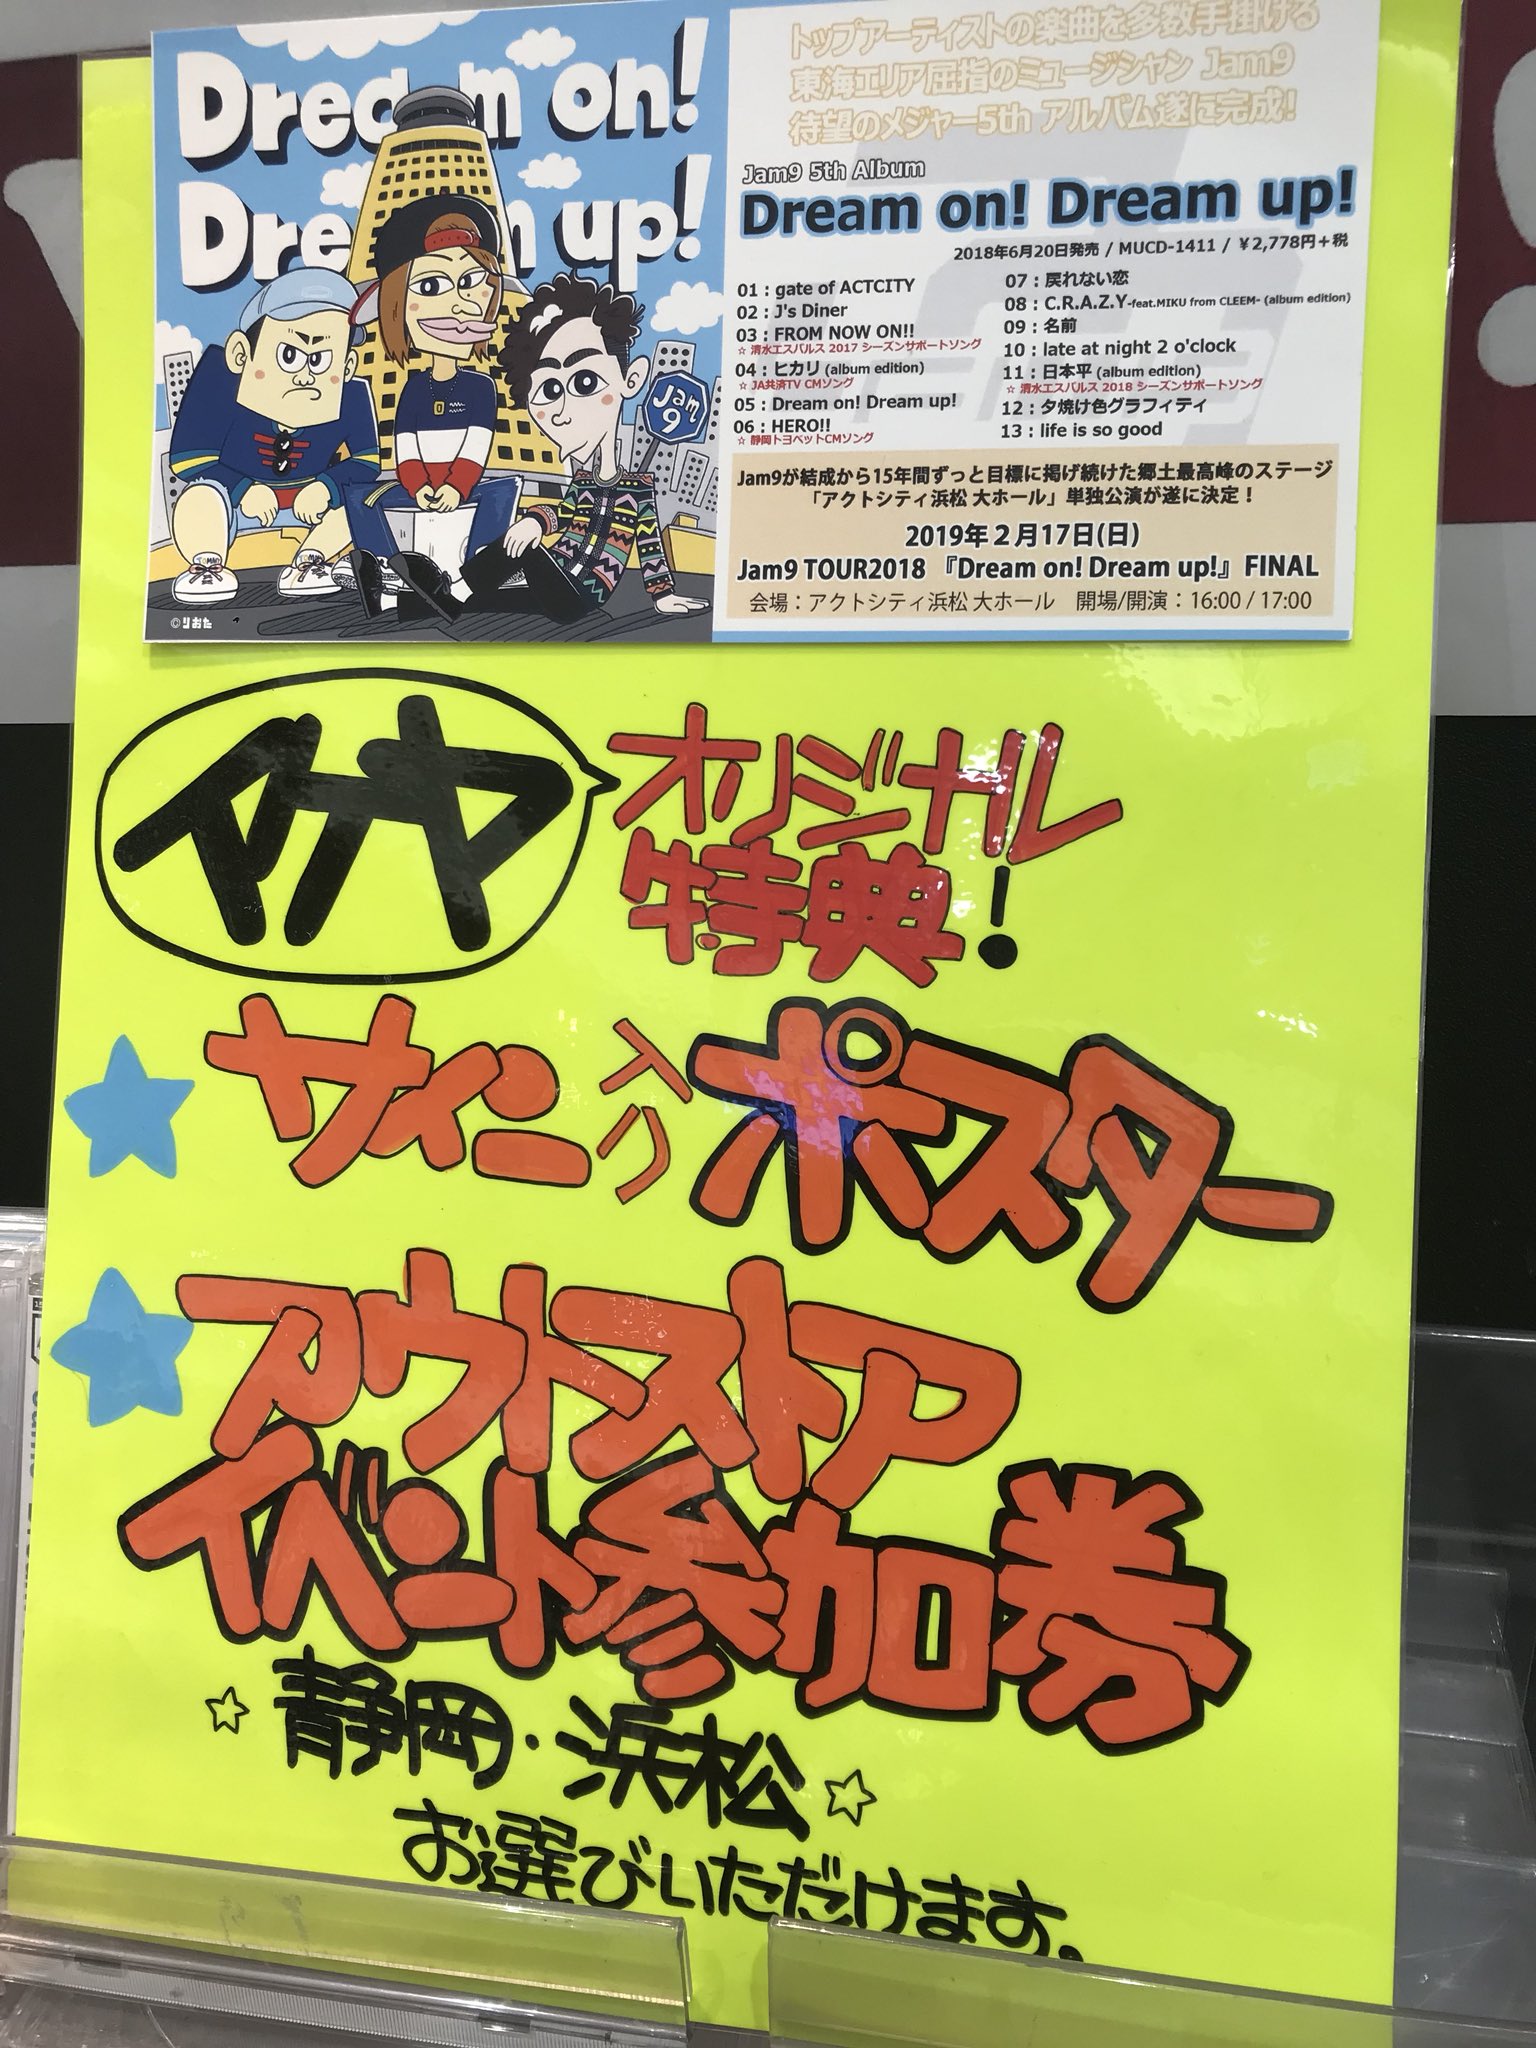 Dream on!
Dream up!
Jam
9
©りおた
トップアーティストの楽曲を多数手掛ける
東海エリア屈指のミュージシャン Jam9
待望のメジャー5th アルバム遂に完成!
Jam9 5th Album
Dream on! Dream up!
2018年6月20日発売 / MUCD-1411 / ¥2,778円+税
01 : gate of ACTCITY
02 : J's Diner
03 : FROM NOW ON!!
☆ 清水エスパルス 2017 シーズンサポートソング
04 : ヒカリ (album edition)
☆ JA共済TV CMソング
05 : Dream on! Dream up!
06 : HERO!!
☆ 静岡トヨペットCMソング
07 : 戻れない恋
08 : C.R.A.Z.Y-feat.MIKU from CLEEM- (album edition)
09 : 名前
10 : late at night 2 o'clock
11 : 日本平 (album edition)
☆ 清水エスパルス 2018 シーズンサポートソング
12 : 夕焼け色グラフィティ
13 : life is so good
Jam9が結成から15年間ずっと目標に掲げ続けた郷土最高峰のステージ
「アクトシティ浜松 大ホール」単独公演が遂に決定!
2019年2月17日(日)
Jam9 TOUR2018 『Dream on! Dream up!』 FINAL
会場:アクトシティ浜松 大ホール 開場/開演:16:00 / 17:00
マナヤ
オリジナル
特典!
★ サイン入りポスター
★ アウトストア
イベント参加券
☆ 静岡・浜松 ☆
お選びいただけます。